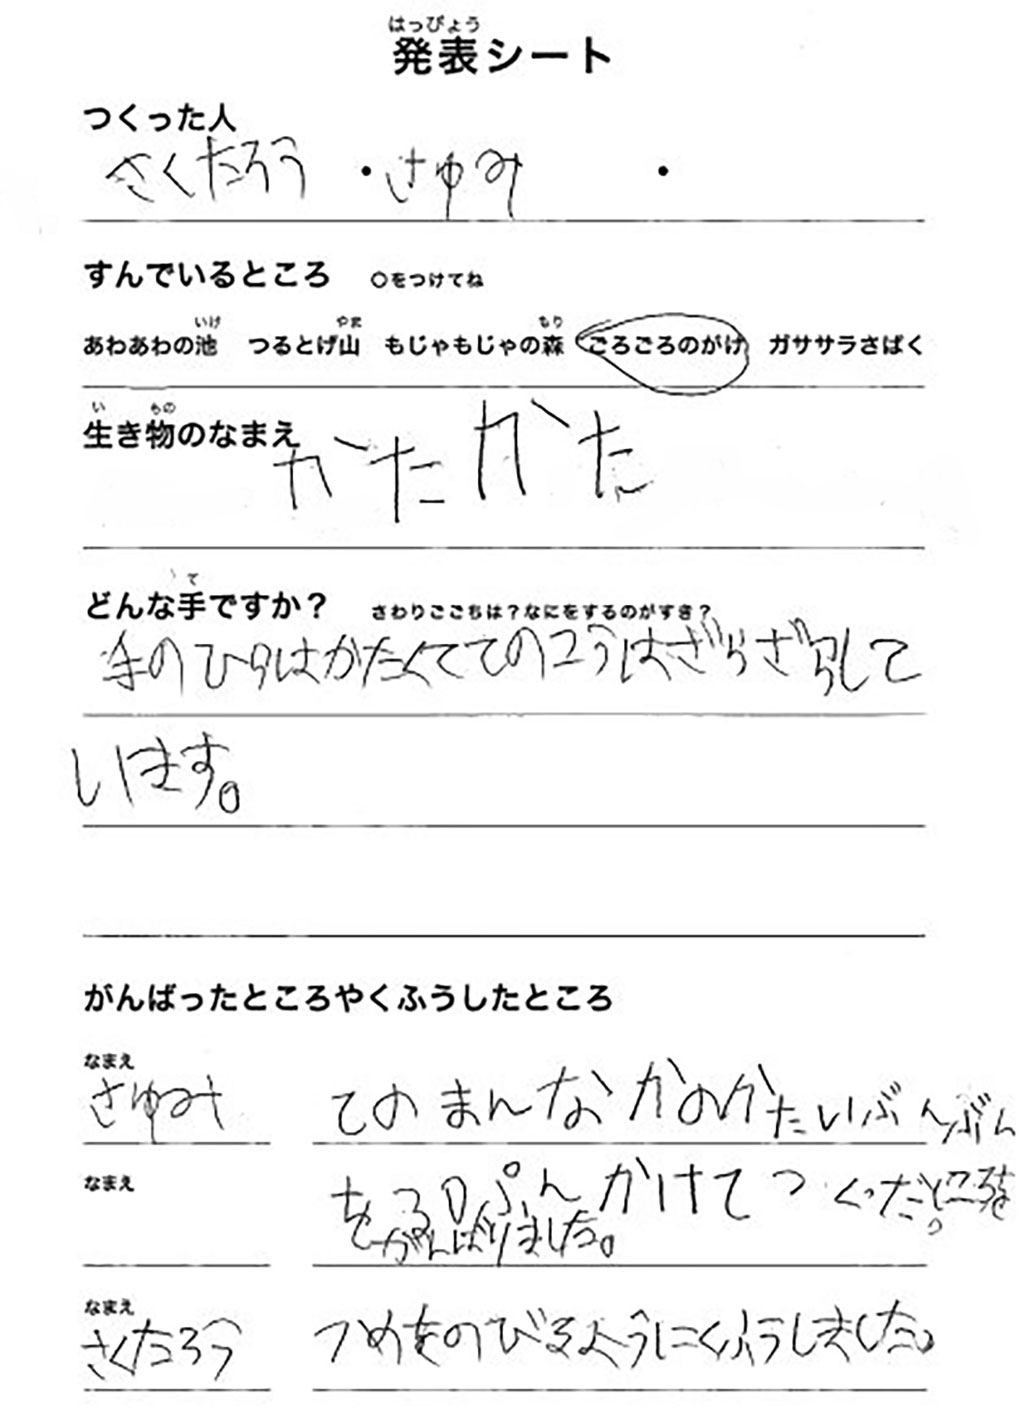 はっぴょう
発表シート
つくった人
さくたろう ・さゆみ ・
すんでいるところ ○をつけてね
いけ やま もり
あわあわの池 つるとげ山 もじゃもじゃの森 ごろごろのがけ ガササラさばく
い もの
生き物のなまえ
がたがた
て
どんな手ですか？ さわりごこちは？なにをするのがすき？
手のひらはかたくててのこうはざらざらして
います。
がんばったところやくふうしたところ
なまえ
さゆみ てのまんなかのかたいぶんぶん
なまえ
ぷんかけてつくったところを
がんばりました。
なまえ
さくたろう つめをのびるようにくふうしました。